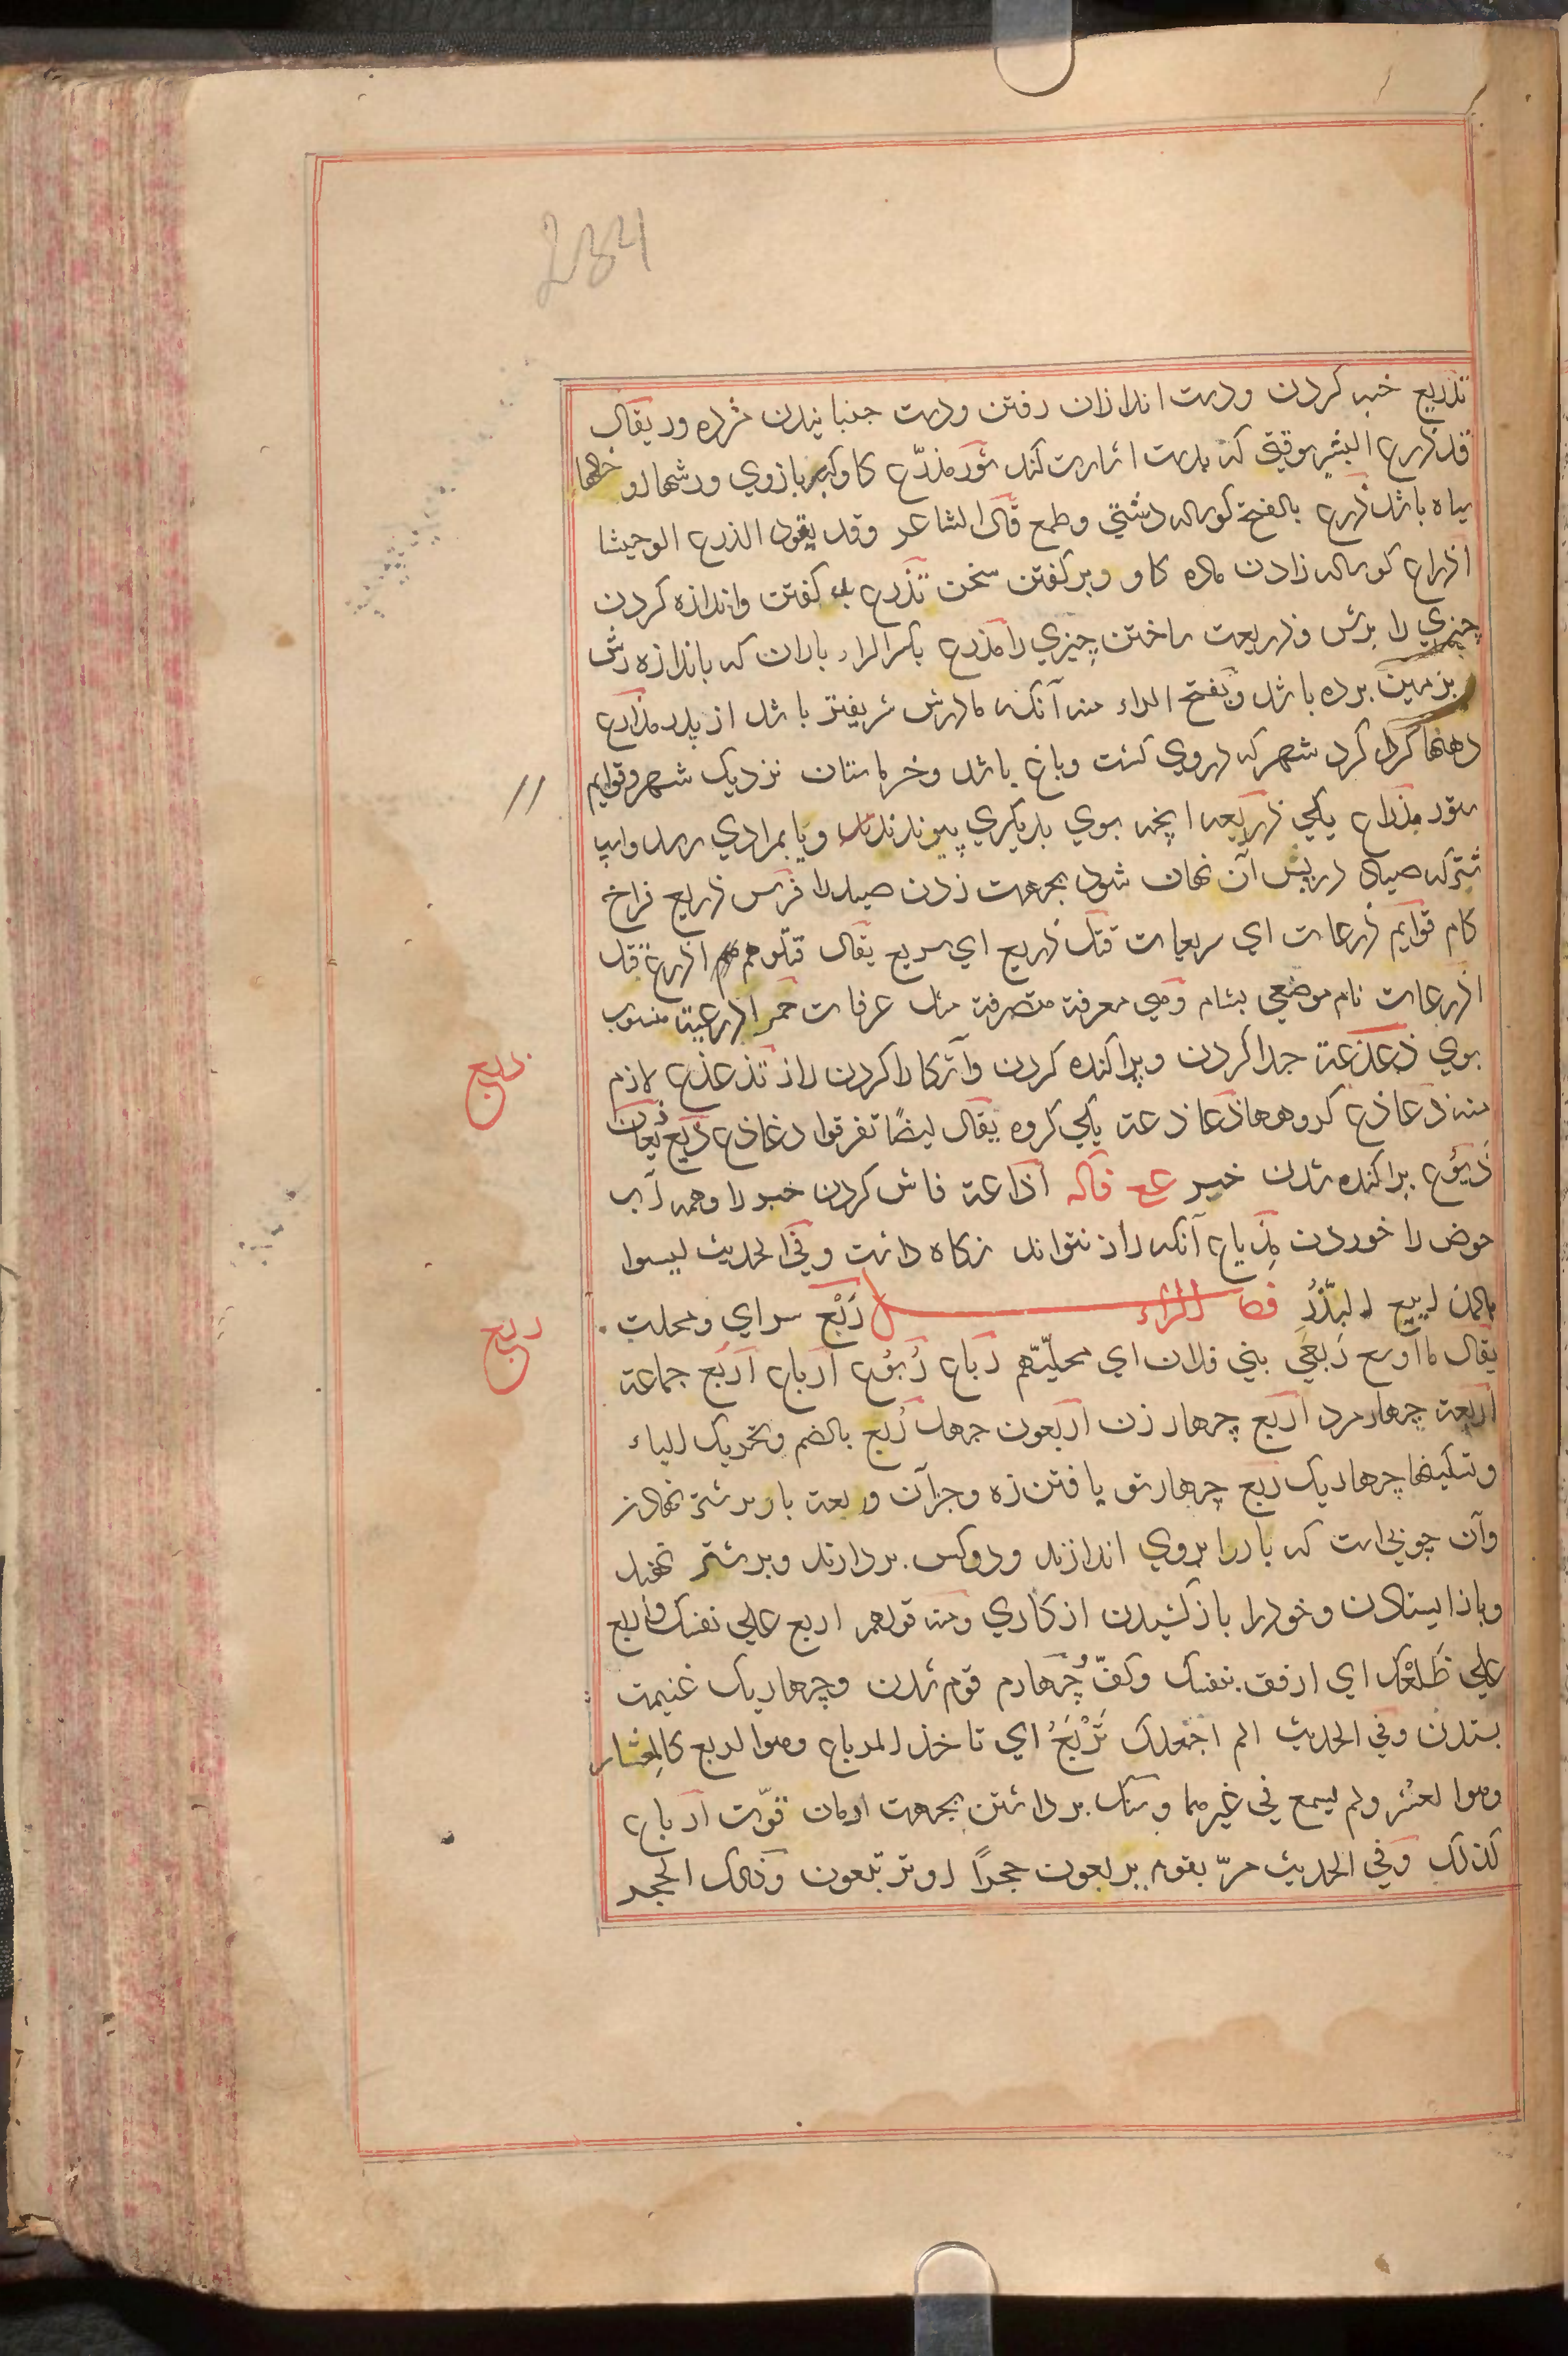 234
تذریع خبر کردن ودست اندازان رفتن ودست جنبانیدن مژده ور یقال
قد ذرع البشیر وقتی که بدست اشارت کند ثور مذرّع کاو کبر بازوی ورشهاء او خطها
سیاه باشد ذرع بالفتح کوساله دشتی وطمع قال الشاعر وقد یقود الذرع الوحیشا
اذراع کوساله زادن ماده کاو وبر کفتن سخن تذرع بد کفتن واندازه کردن
چیزی را برش وذریعت ساختن چیزی را مذرع بکسر الراء باران که باندازه رش
بزمین برده باشد وبفتح الراء منه آنکه مادرش شریفتر باشد از پدر مذارع
دهنها کرد کرد شهر که دروی کشت وباغ باشد وخرماستان نزدیک شهر وقوایم
ستور مذراع یکی ذریعه انچه بوی بدیکری پیوندند وبا بمرادی رسد واسپ
شتر که صیاد درپس آن نهان شود بجهت زدن صید را فرس ذریع فراخ
کام قوایم ذرعات ای سریعات قتل ذریع ای سریع یقال قتلوهم اذرع قتل
اذرعات نام موضعی بشام وهی معرفة متصرفة مثل عرفات خمر اذرعیة منسوب
بوی ذعذعة جدا کردن وپراکنده کردن وآشکارا کردن راز تذعذع لازم
منه ذعاذع کروهها ذعاذعة یکی کروه یقال ایضًا تفرقوا ذعاذع ذیع ذیعان
ذیوع پراکنده شدن خبر عع فاله اذاعة فاش کردن خبر را وهمه آب
حوض را خوردن مذیاع آنکه راز نتواند نکاه داشت وفی الحدیث لیسوا
بالمذاییع البُذُر فصل الراء رَبْع سرای ومحلت
یقال ما اوسع رَبعَ بنی فلان ای محلّتهم رباع رُبُوع ارباع اربع جماعة
اربعة چهار مرد اربع چهار زن اربعون چهل رُبع بالضم وتحریک الباء
وتسکینها چهاریک ربع چهارتو یافتن زه وجزآن وربعت بار بر شتر نهادن
وآن چوبی است که بار را بروی اندازند ودوکس بردارند وبر شتر نهند
وبازایستادن وخود را بازکشیدن از کاری ومنه قولهم اربع علی نفسک واربع
علی ظَلْعک ای ارفق بنفسک وکفّ وچهارم قوم شدن وچهاریک غنیمت
بستدن وفی الحدیث الم اجعلک تَرْبَعُ ای تاخذ المرباع وهو الربع کالمعشار
وهو العشر ولم یسمع فی غیرهما وسنک برداشتن بجهت امتحان قوّت ارباع
کذلک وفی الحدیث مرّ بقوم یربعون حجرًا او یرتبعون وذلک الحجر
ذیع
ربع